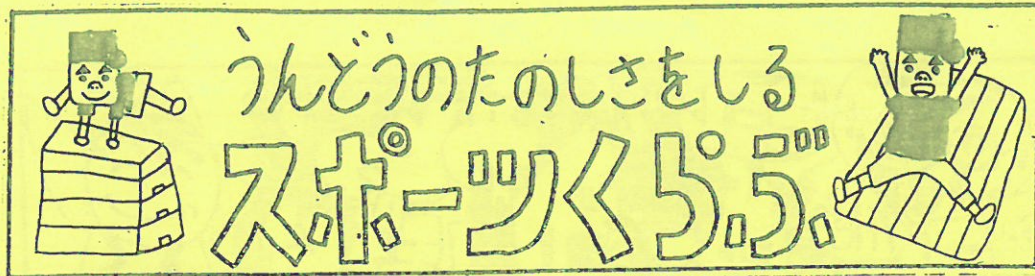 うんどうのたのしさをしる
スポーツくらぶ